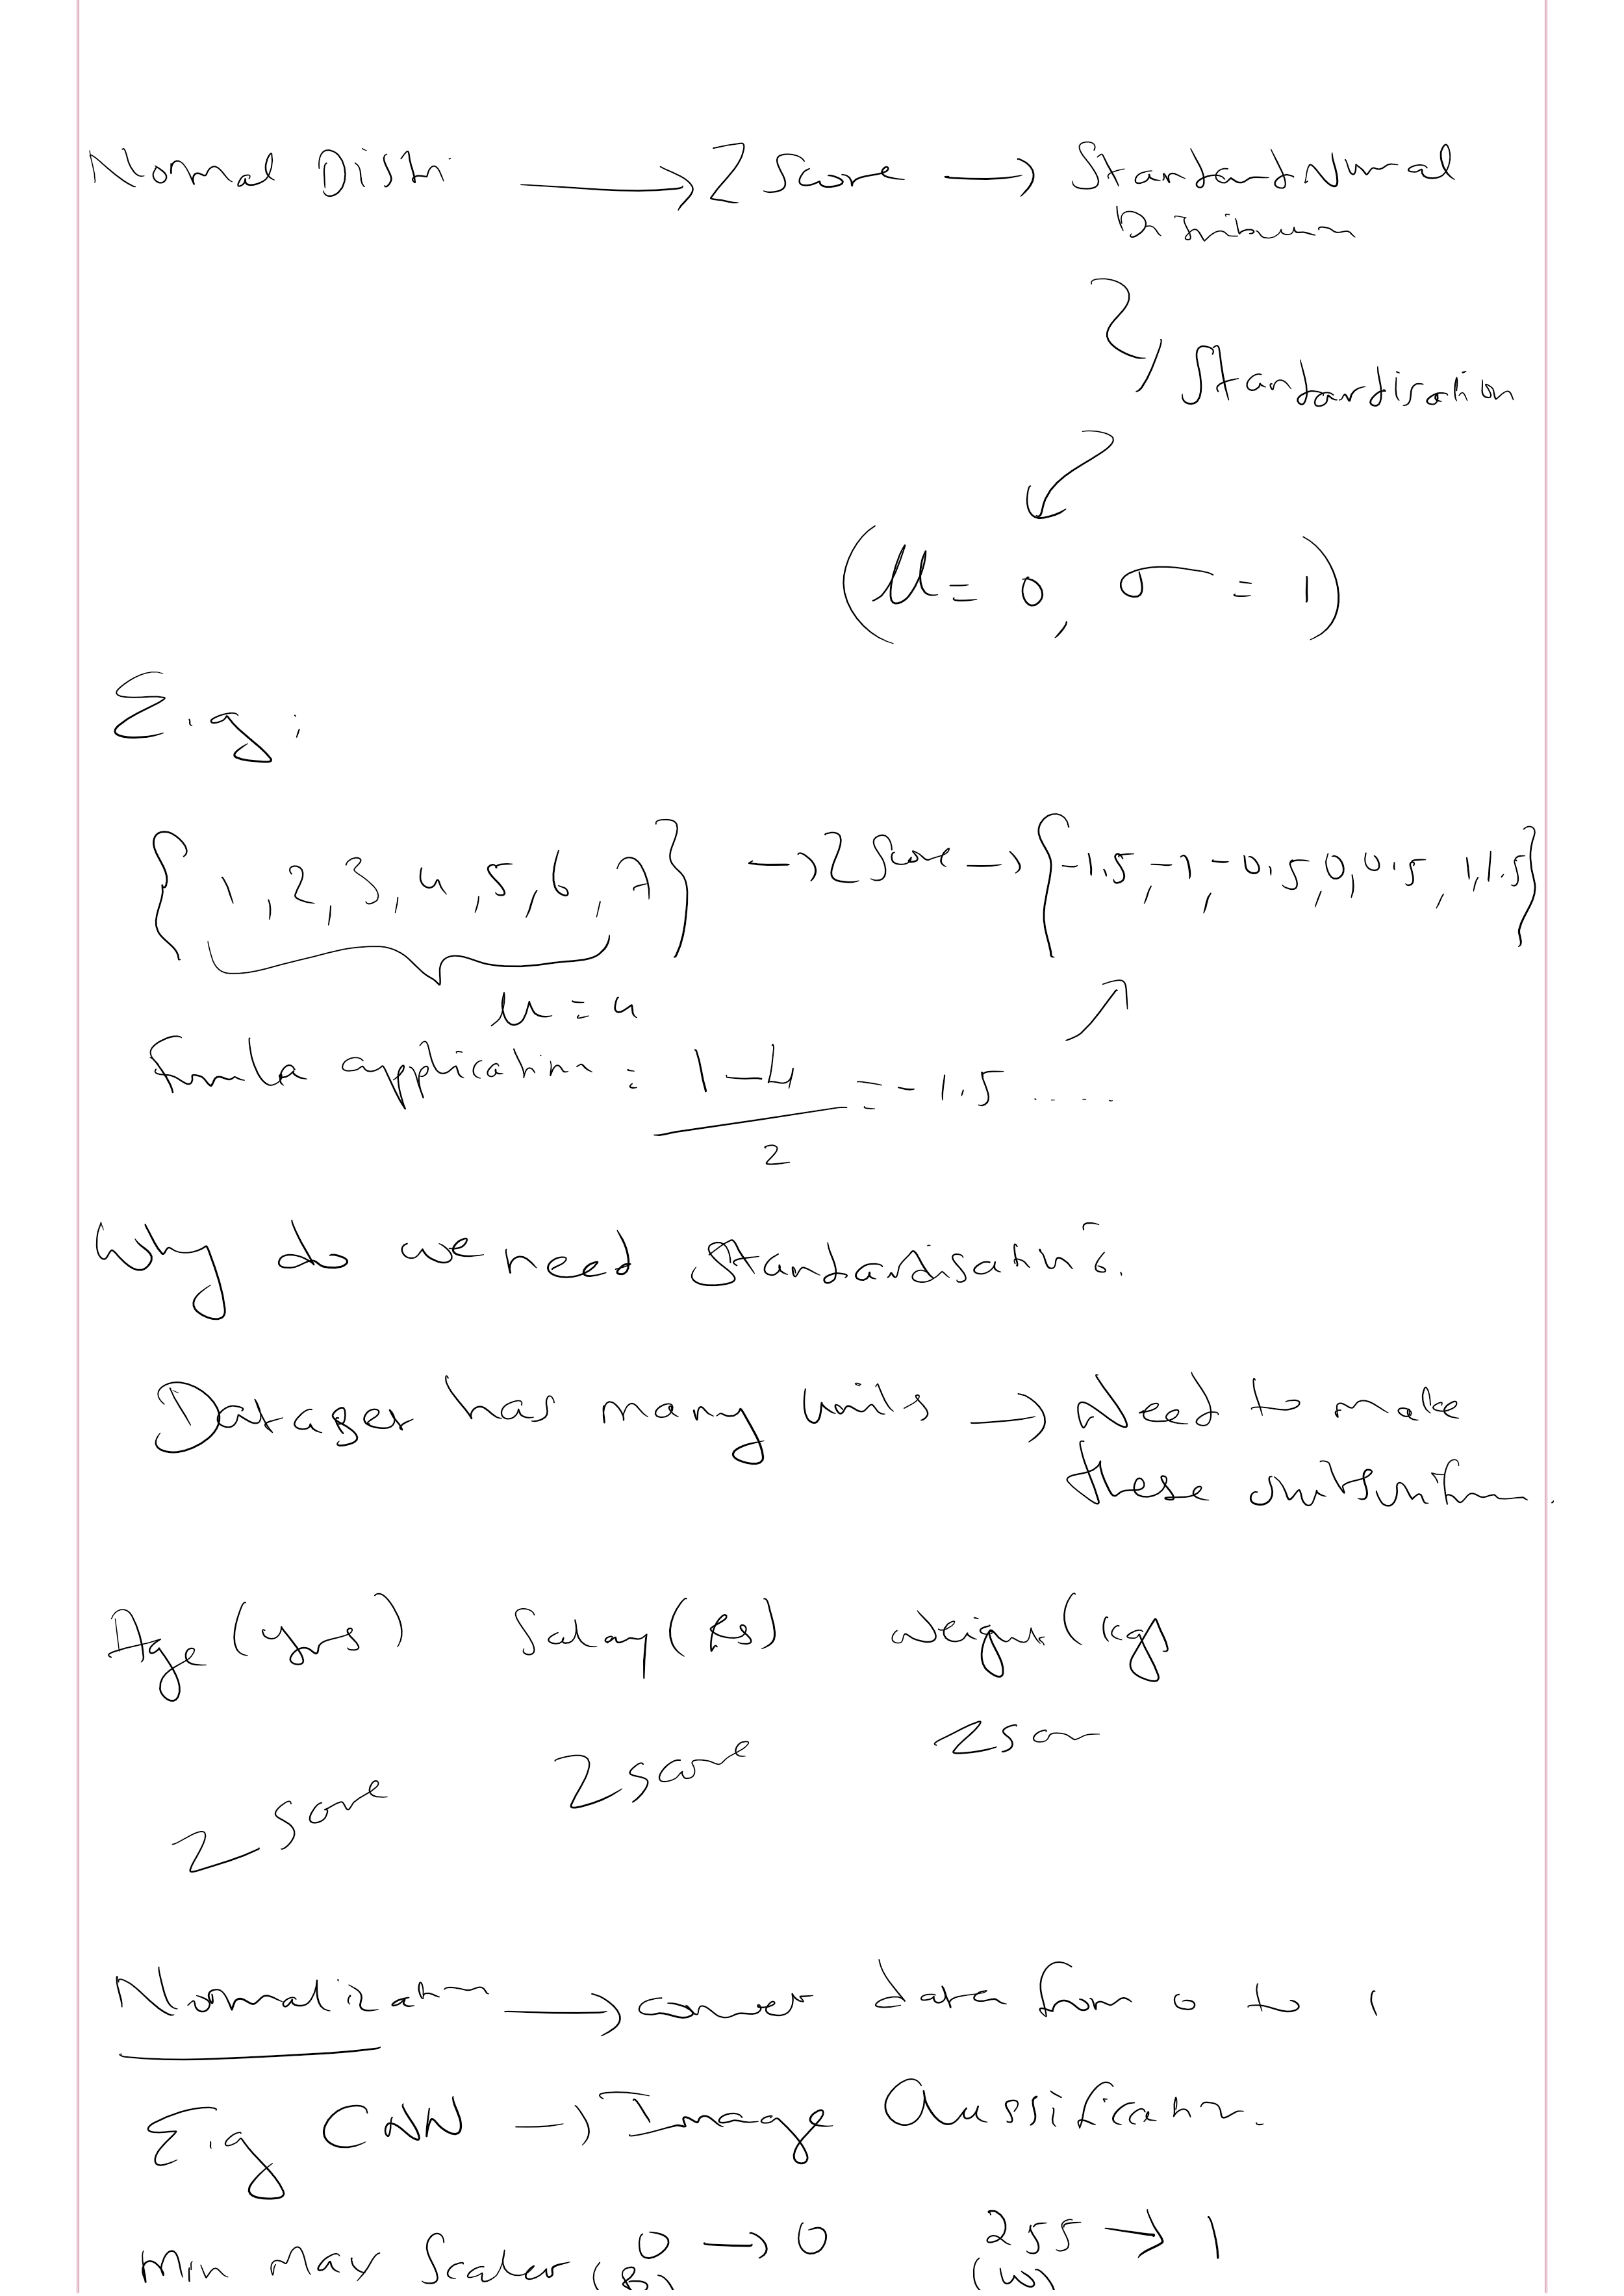 Normal Distr. → Z Score → Standard Normal
Distribution
Standardisation
(μ = 0, σ = 1)
E.g:
{1, 2, 3, 4, 5, 6, 7} → Z Score → {-1.5, -1, -0.5, 0, 0.5, 1, 1.5}
μ = 4
Formula application = 1-4 / 2 = -1.5 ....
Why do we need standardisation?
Dataset has many units → Need to make
these
Age (yrs) Salary (Rs) Weight (kgs
Z score Z score Z score
Normalization → convert data from 0 to 1
E.g CNN → Image Classification.
Min Max Scaler 0 → 0 255 → 1
(B) (W)